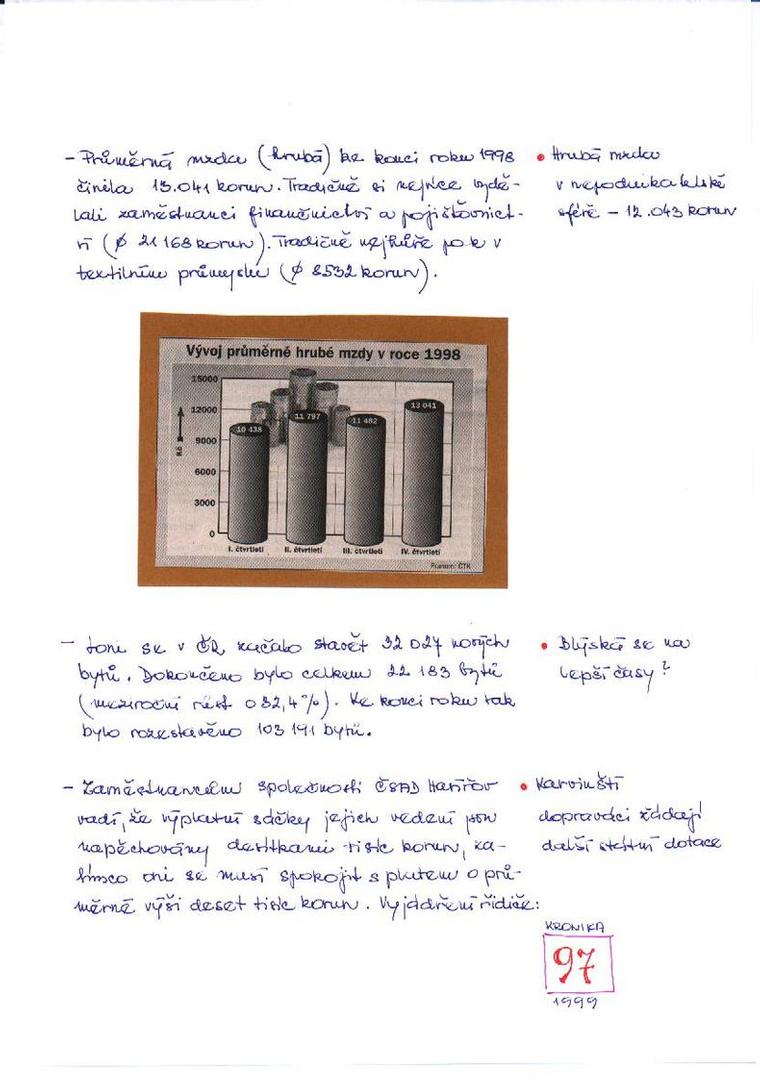 - Průměrná mzda (hrubá) ke konci roku 1998
činila 13.041 korun. Tradičně si nejvíce vydě-
lali zaměstnanci finančnictví a pojišťovnict-
ví (ø 21 168 korun). Tradičně nejhůře pak v
textilním průmyslu (ø 8532 korun).
• Hrubá mzda
v nepodnikatelské
sféře - 12.043 korun
Vývoj průměrné hrubé mzdy v roce 1998
15000
12000
9000
6000
3000
0
Kč
10 438
11 797
11 482
13 041
I. čtvrtletí
II. čtvrtletí
III. čtvrtletí
IV. čtvrtletí
Pramen: ČTK
- Loni se v ČR začalo stavět 32 027 nových
bytů. Dokončeno bylo celkem 22 183 bytů
(meziroční růst o 32,4%). Ke konci roku tak
bylo rozestavěno 103 191 bytů.
• Blýská se na
lepší časy?
- Zaměstnancům společnosti ČSAD Havířov
vadí, že výplatní sáčky jejich vedení jsou
napěchovány desítkami tisíc korun, za-
tímco oni se musí spokojit s platem o prů-
měrné výši deset tisíc korun. Vyjádření řidiče:
• Karvinští
dopraváci žádají
další státní dotace
KRONIKA
97
1999